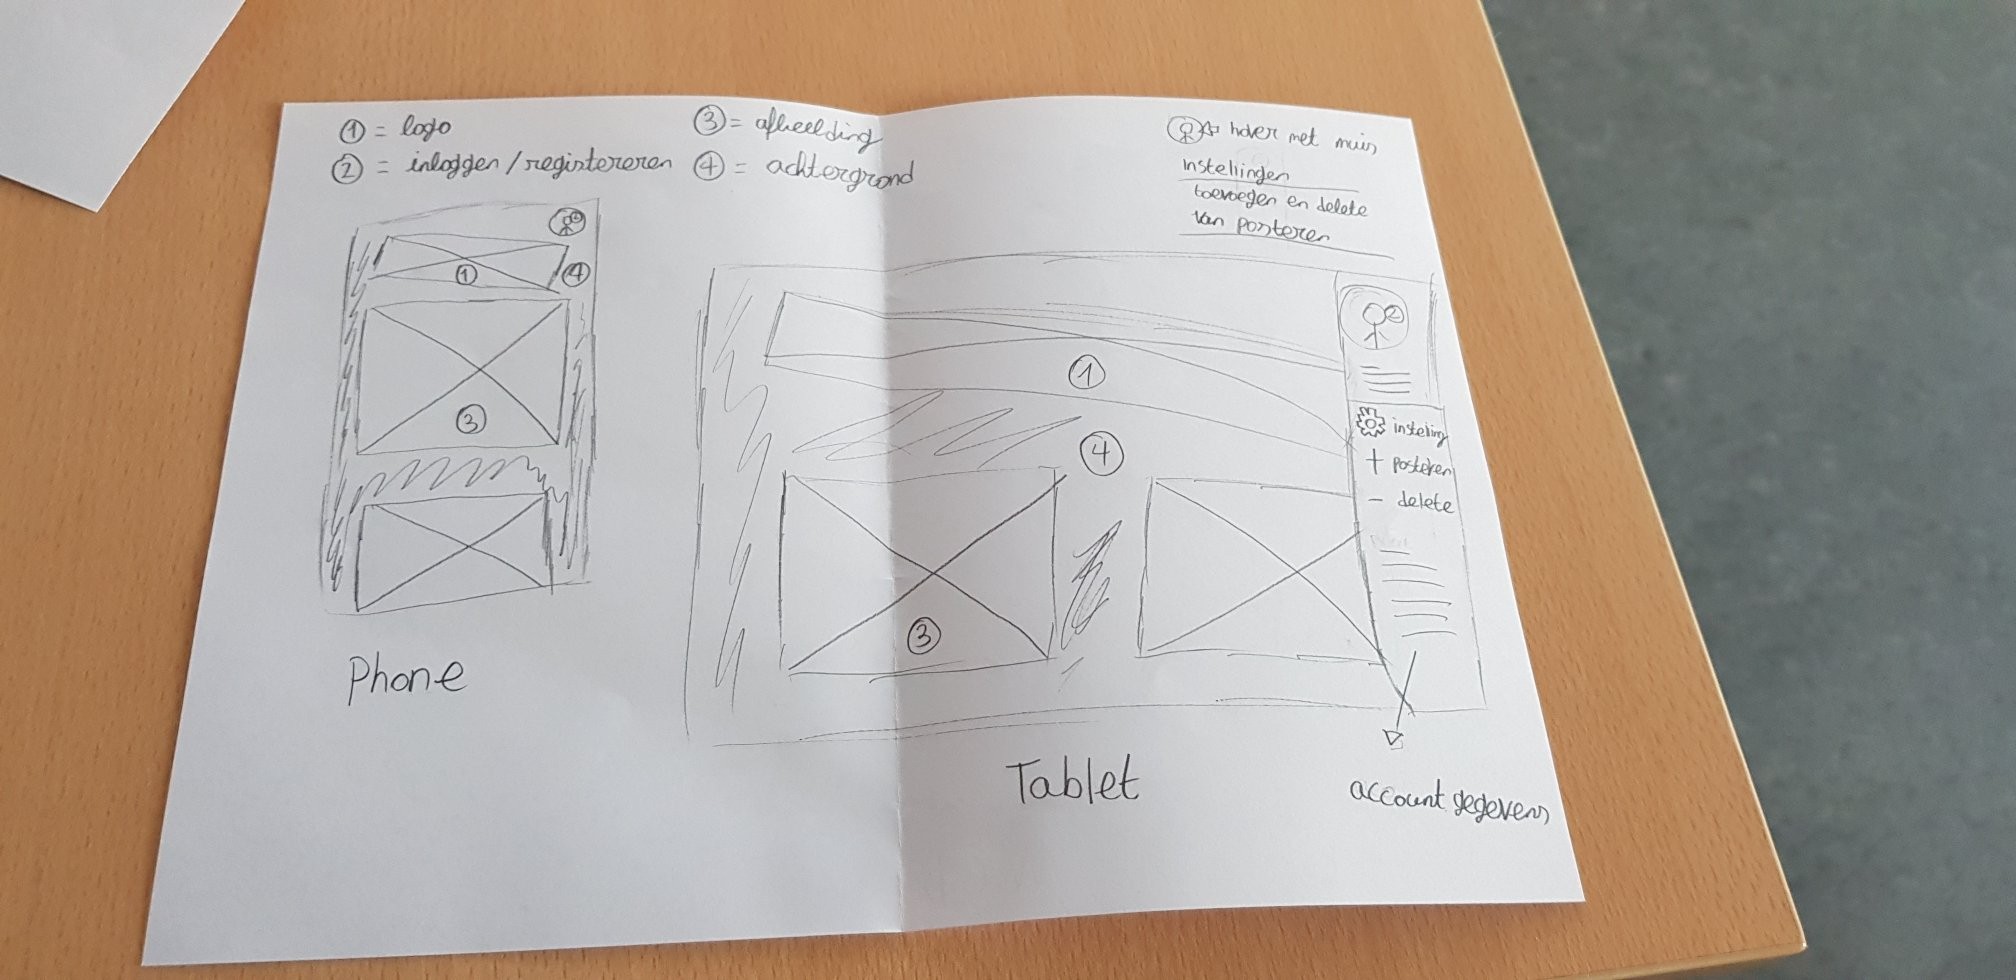 ① = logo
② = inloggen / registereren
③ = afbeelding
④ = achtergrond
hover met muis
instellingen
toevoegen en delete
van posteren
②
①
④
③
Phone
②
①
④
③
insteling
+ posteren
- delete
Tablet
account gegevens